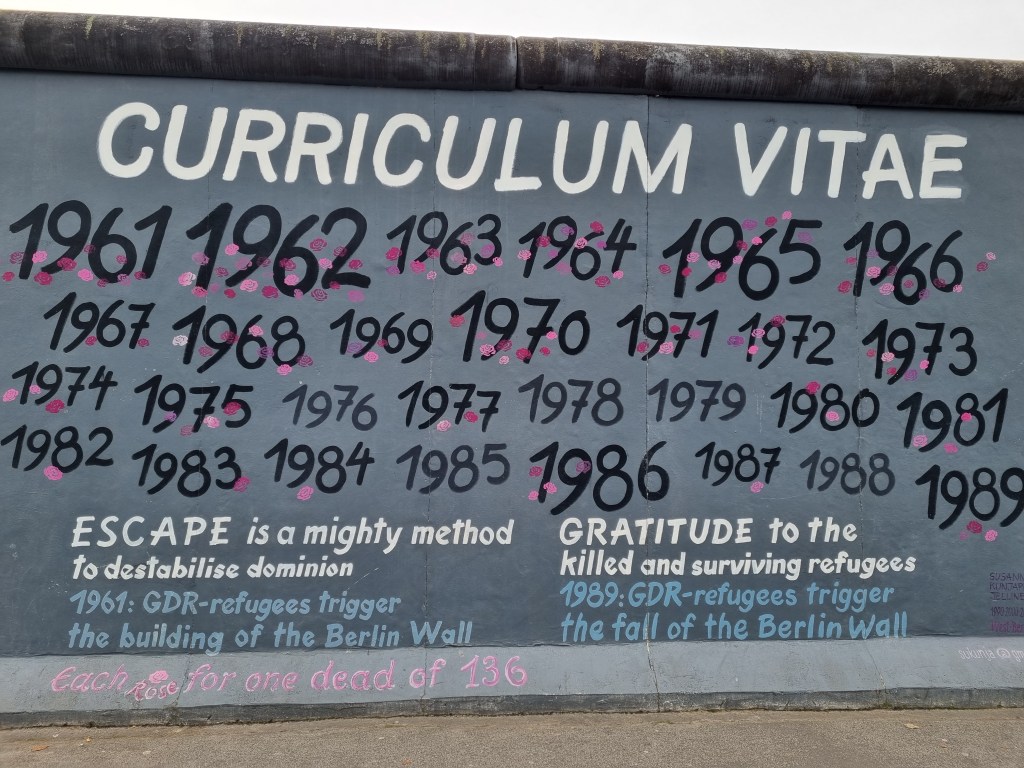 CURRICULUM VITAE
1961 1962 1963 1964 1965 1966
1967 1968 1969 1970 1971 1972 1973
1974 1975 1976 1977 1978 1979 1980 1981
1982 1983 1984 1985 1986 1987 1988 1989
ESCAPE is a mighty method
to destabilise dominion
1961: GDR-refugees trigger
the building of the Berlin Wall
GRATITUDE to the
killed and surviving refugees
1989: GDR-refugees trigger
the fall of the Berlin Wall
Each rose for one dead of 136